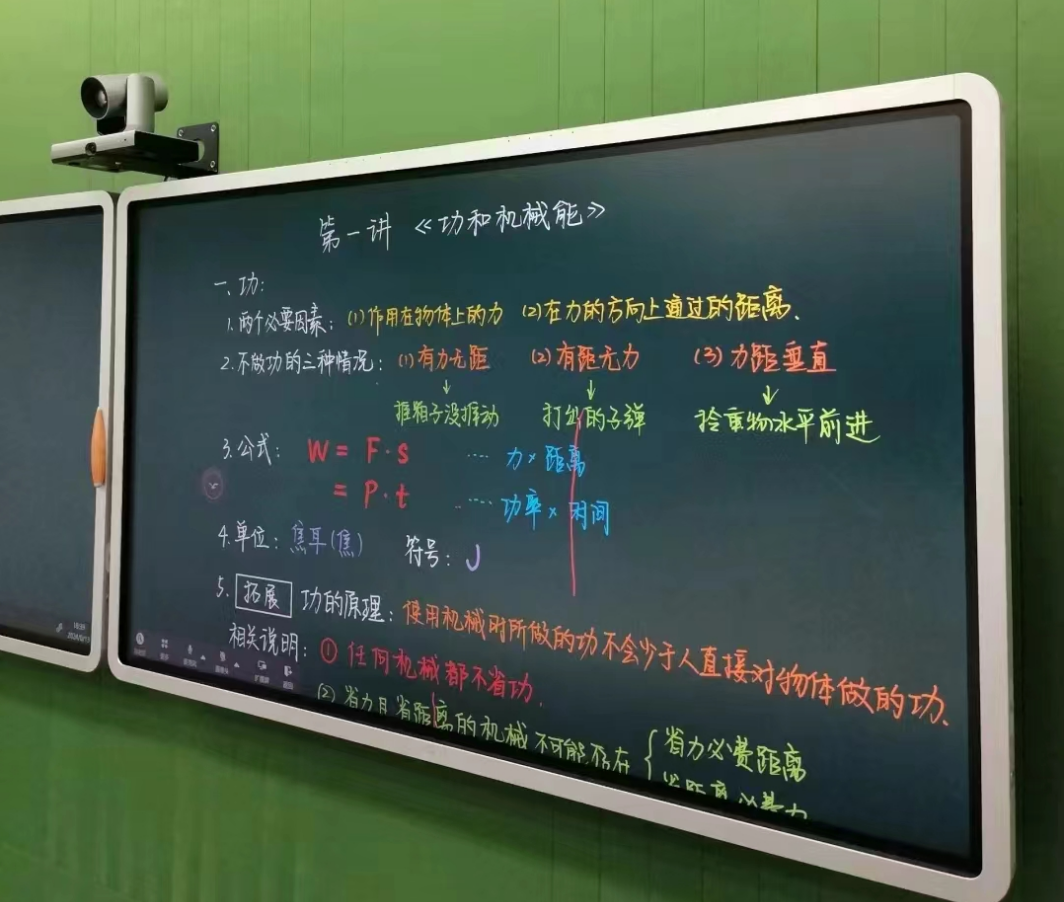 第一讲 《功和机械能》
一、功:
1.两个必要因素: (1)作用在物体上的力 (2)在力的方向上通过的距离.
2.不做功的三种情况: (1)有力无距 (2)有距无力 (3)力距垂直
↓ ↓ ↓
推箱子没推动 打出的子弹 拎重物水平前进
3.公式: W = F·s ···· 力×距离
= P·t ···· 功率×时间
4.单位: 焦耳(焦) 符号: J
5. 拓展 功的原理: 使用机械时所做的功不会少于人直接对物体做的功.
相关说明: ① 任何机械都不省功.
(2) 省力且省距离的机械不可能存在 { 省力必费距离
省距离必费力